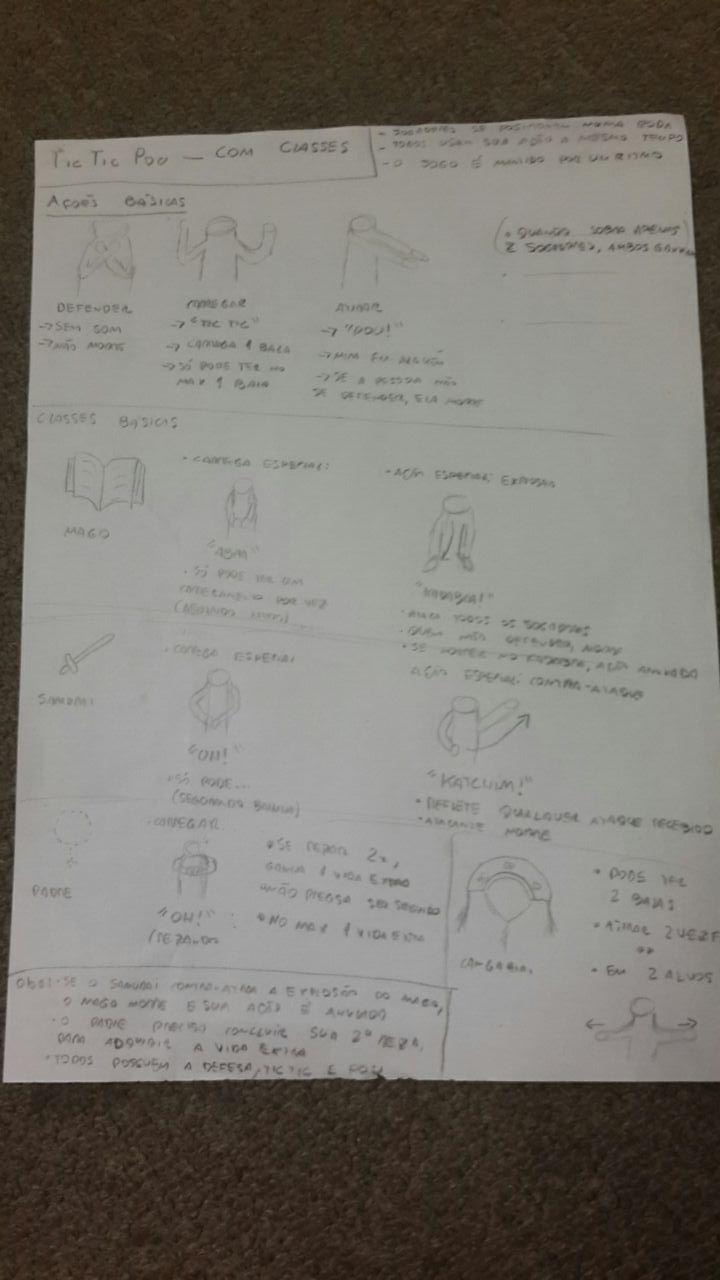 TIC TIC POU — COM CLASSES
- JOGADORES SE POSICIONAM NUMA RODA
- TODOS USAM SUA AÇÃO A MESMO TEMPO
- O JOGO É MANTIDO POR UM RITMO
AÇÕES BÁSICAS
(• QUANDO SOBRA APENAS
2 JOGADORES, AMBOS GANHAM)
DEFENDER
→ SEM SOM
→ NÃO MORRE
CARREGAR
→ "TIC TIC"
→ CARREGA 1 BALA
→ SÓ PODE TER NO
MAX 1 BALA
ATIRAR
→ "POU!"
→ MIRA EM ALGUÉM
→ SE A PESSOA NÃO
SE DEFENDER, ELA MORRE
CLASSES BÁSICAS
MAGO
• CARREGA ESPECIAL:
"ABRA"
• SÓ PODE TER UM
CARREGAMENTO POR VEZ
• AÇÃO ESPECIAL: EXPLOSÃO
"KADABRA!"
• ATIRA TODOS OS JOGADORES
• QUEM NÃO DEFENDER, MORRE
• SE MORRER NO KADABRA, AÇÃO ANULADA
SAMURAI
• CARREGA ESPECIAL
"OH!"
• SÓ PODE...
(SEGURANDO BAINHA)
AÇÃO ESPECIAL: CONTRA-ATAQUE
"KATCHIM!"
• REFLETE QUALQUER ATAQUE RECEBIDO
• ATACANTE MORRE
PADRE
• CARREGAR
"OH!"
(REZANDO
• SE REZAR 2x,
GANHA 1 VIDA EXTRA
• NÃO PRECISA SER SEGUIDO
• NO MAX 1 VIDA EXTRA
CANGACEIRO
• PODE TER
2 BALAS
• ATIRAR 2 VEZES
OU
• EM 2 ALVOS
OBS: • SE O SAMURAI CONTRA-ATACA A EXPLOSÃO DO MAGO,
O MAGO MORRE E SUA AÇÃO É ANULADA
• O PADRE PRECISA CONCLUIR SUA 2ª REZA,
PARA ADQUIRIR A VIDA EXTRA
• TODOS POSSUEM A DEFESA, TIC TIC E POU